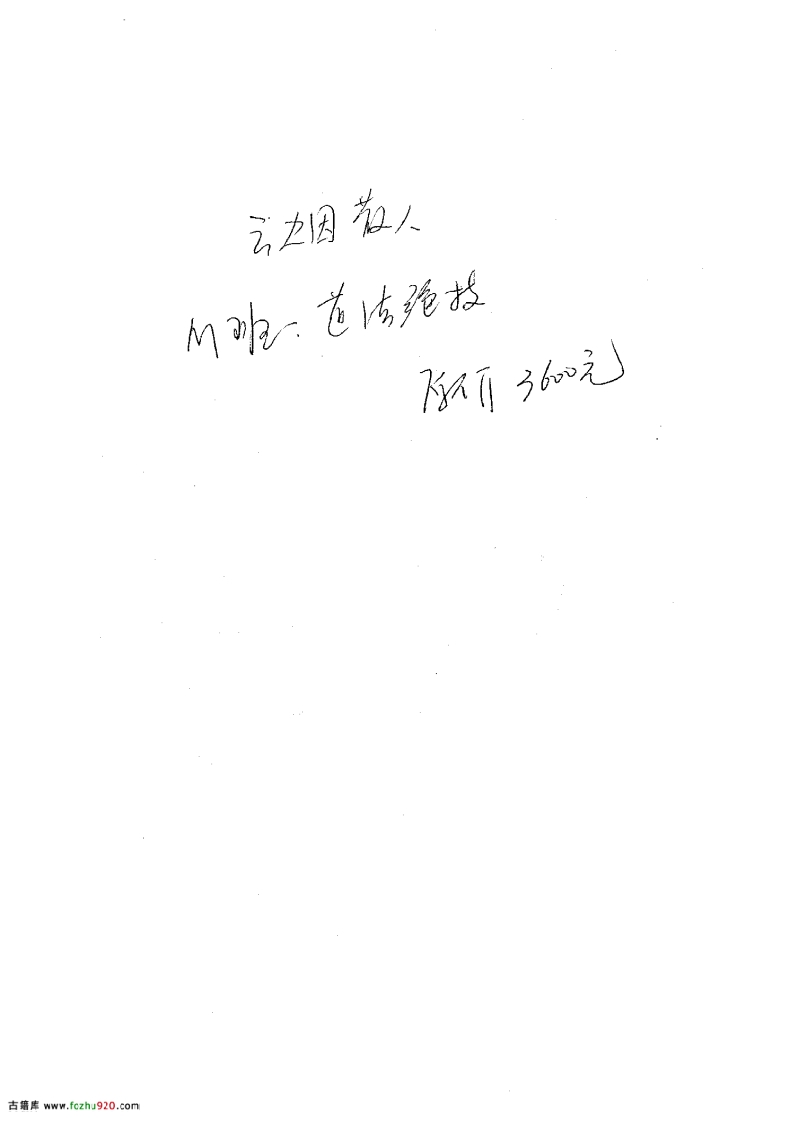 云烟散人
M班、道法绝技
原价3600元
古籍库 www.fczhu920.com